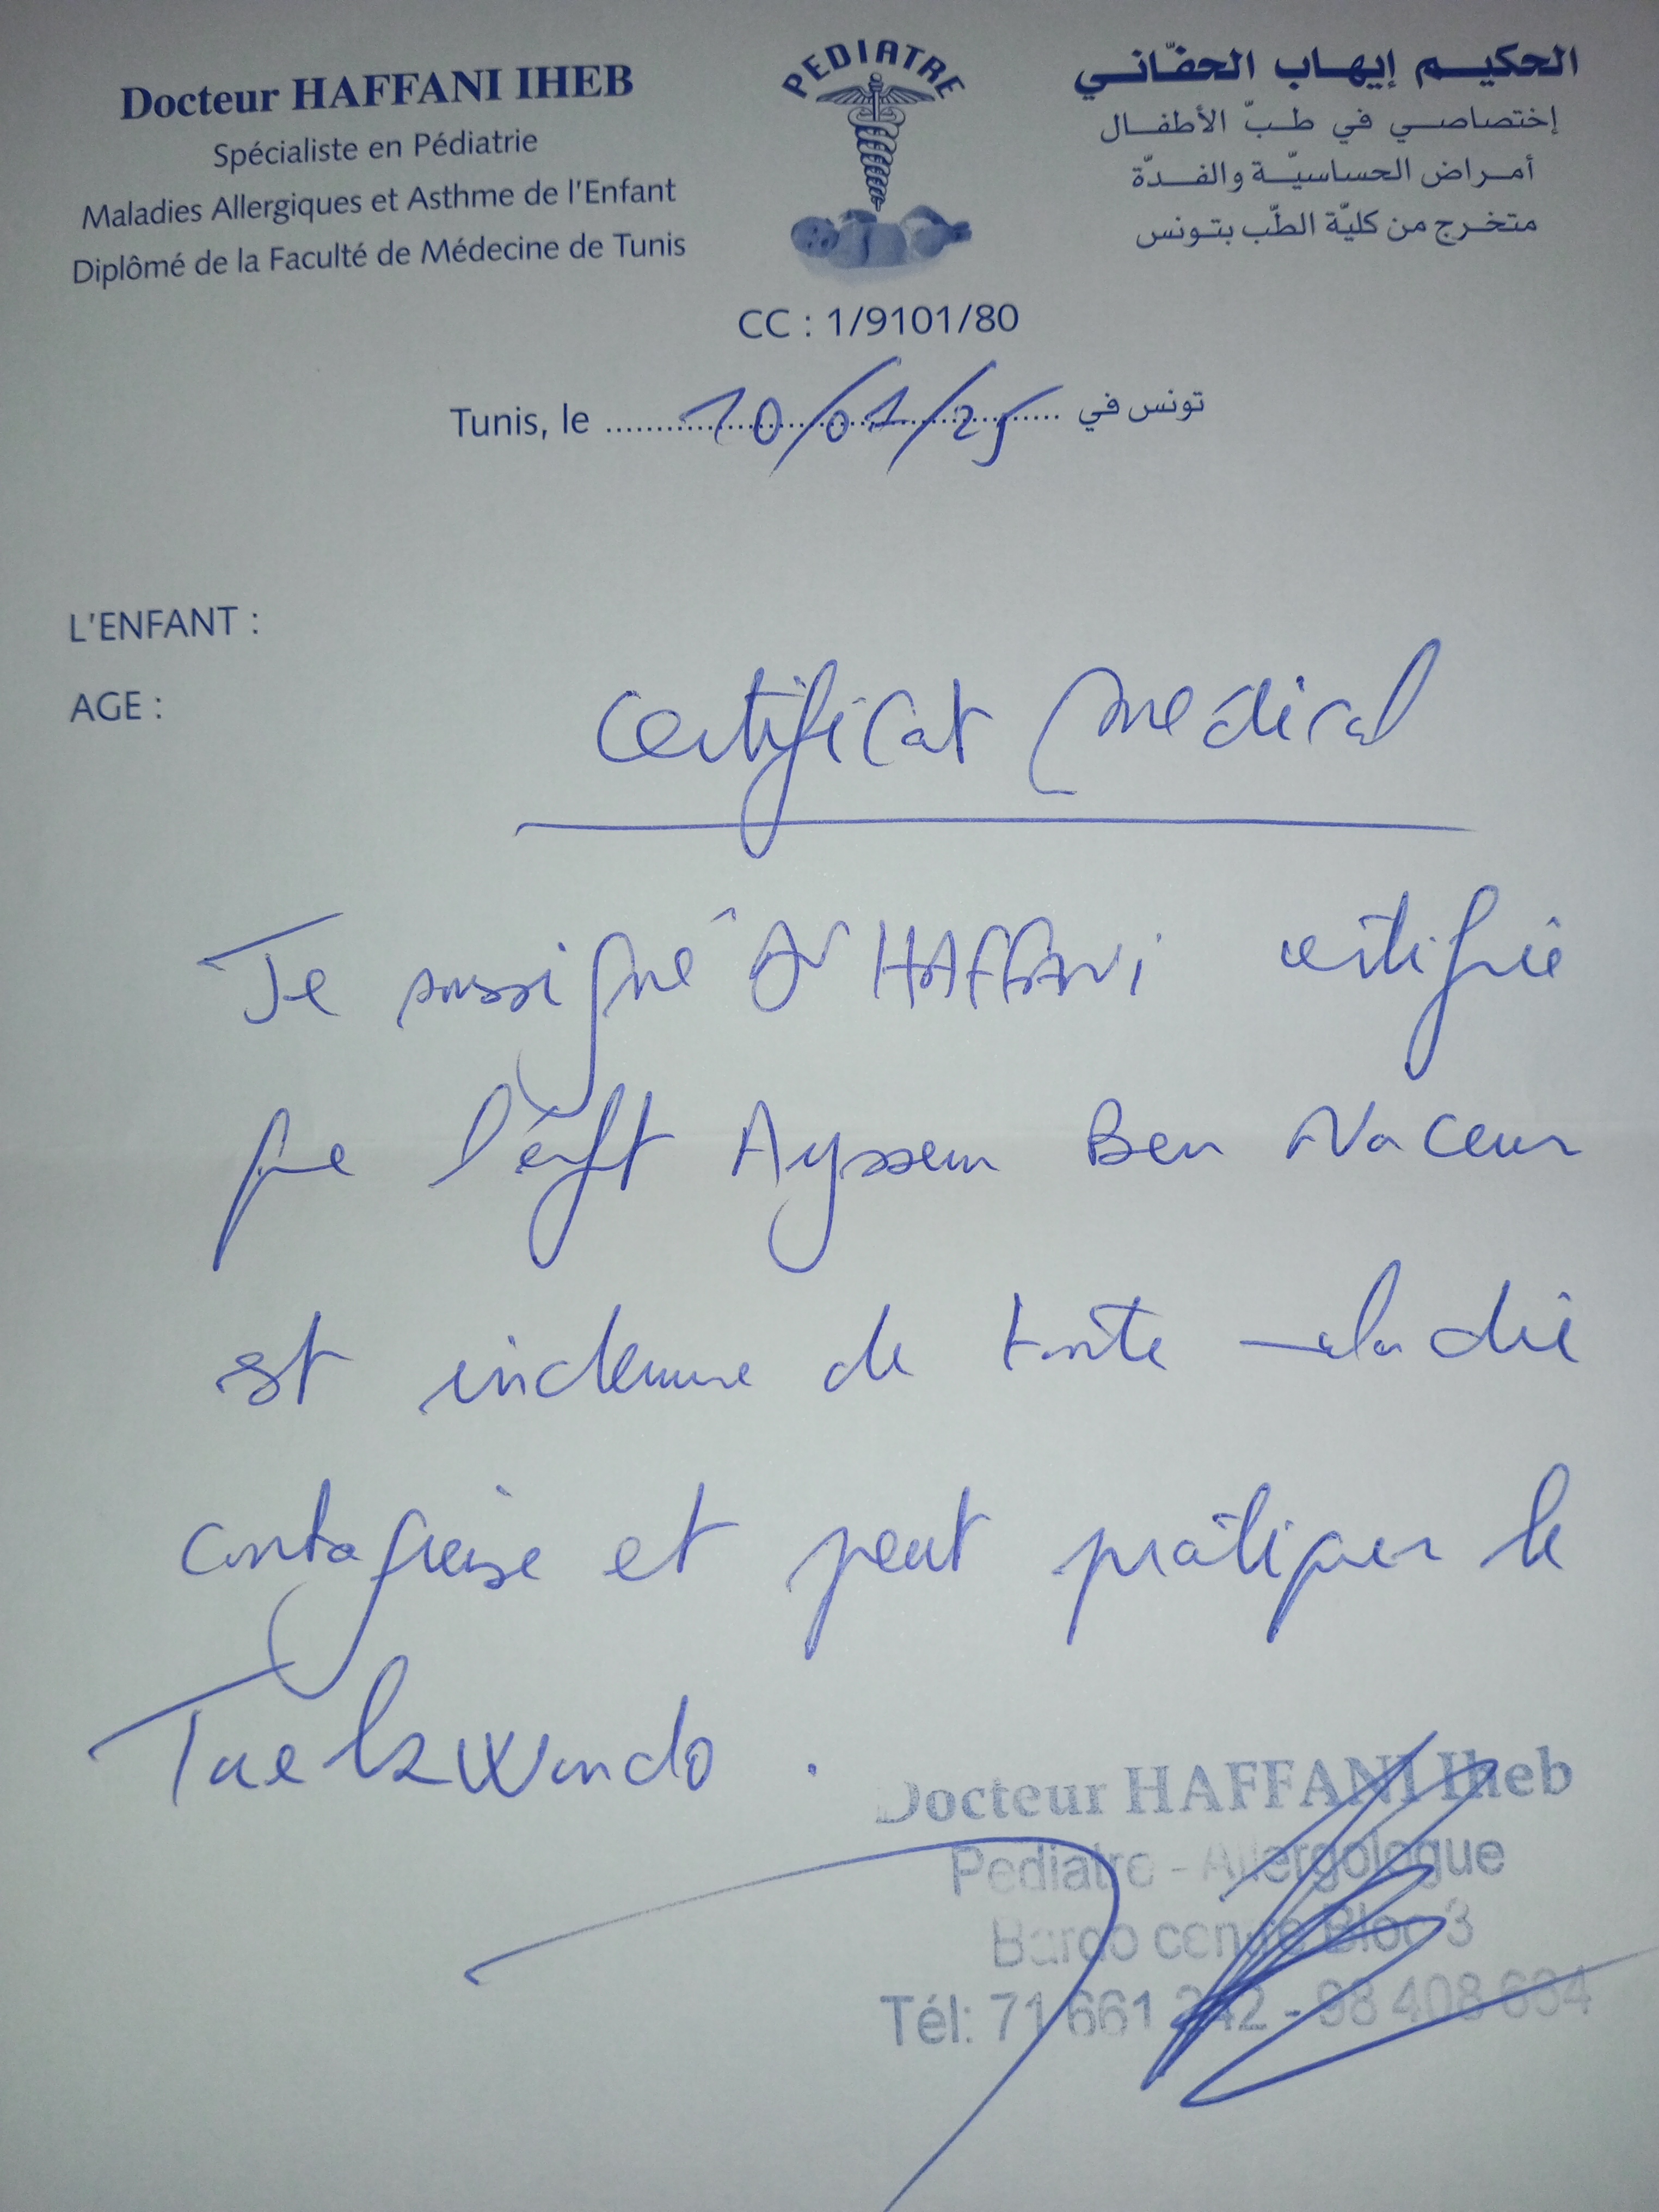 Docteur HAFFANI IHEB
Spécialiste en Pédiatrie
Maladies Allergiques et Asthme de l'Enfant
Diplômé de la Faculté de Médecine de Tunis
PEDIATRE
الحكيم إيهاب الحفّاني
إختصاصي في طبّ الأطفال
أمراض الحساسيّة والفدّة
متخرج من كليّة الطّب بتونس
CC : 1/9101/80
Tunis, le 10/01/25 تونس في
L'ENFANT :
AGE :
Certificat médical
Je soussigné Dr HAFFANi certifie
que l'enft Ayssem Ben Naceur
est indemne de toute maladie
contagieuse et peut pratiquer le
Taekwondo.
Docteur HAFFANI Iheb
Pediatre - Allergologue
Bardo centre Bloc 3
Tél: 71 661 242 - 98 408 634